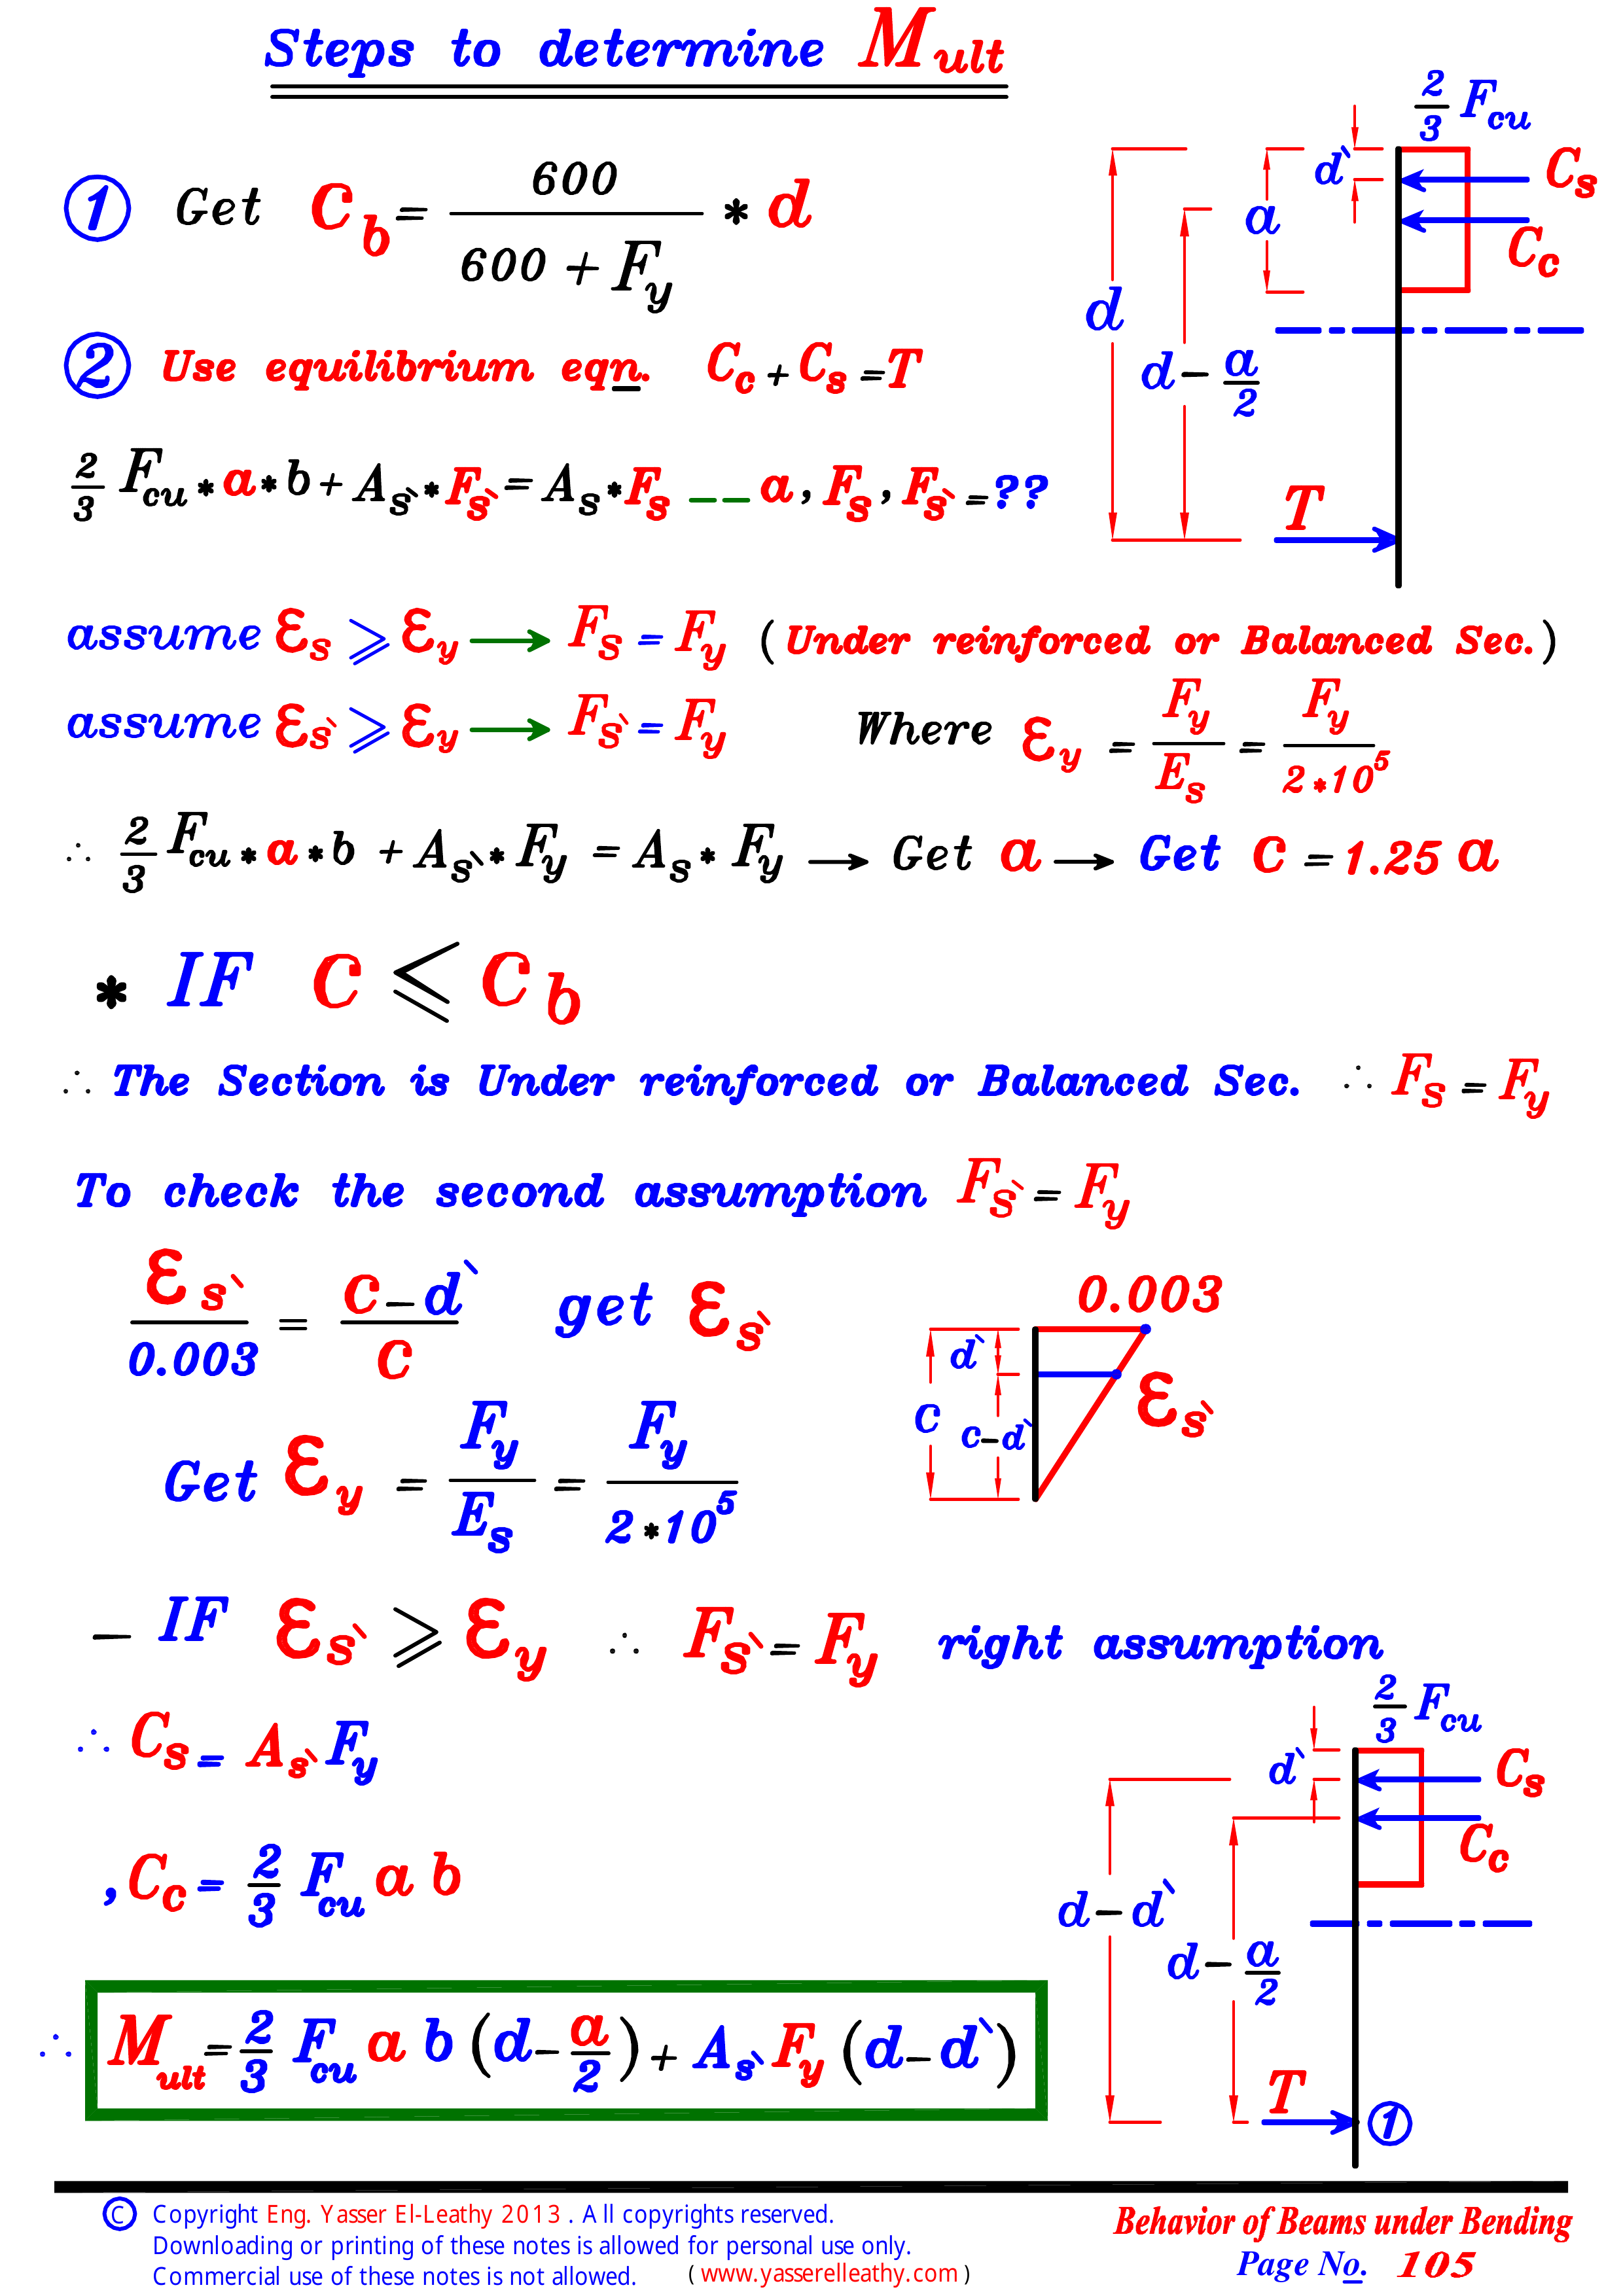 Steps to determine M_ult
2/3 F_cu
① Get C_b = 600 / (600 + F_y) * d
d` C_s
a C_c
d
d - a/2
T
② Use equilibrium eqn. C_c + C_s = T
2/3 F_cu * a * b + A_s` * F_s` = A_s * F_s -- a , F_s , F_s` = ??
assume Ɛ_s ⩾ Ɛ_y → F_s = F_y (Under reinforced or Balanced Sec.)
assume Ɛ_s` ⩾ Ɛ_y → F_s` = F_y Where Ɛ_y = F_y / E_s = F_y / 2*10^5
∴ 2/3 F_cu * a * b + A_s` * F_y = A_s * F_y → Get a → Get C = 1.25 a
* IF C ⩽ C_b
∴ The Section is Under reinforced or Balanced Sec. ∴ F_s = F_y
To check the second assumption F_s` = F_y
Ɛ_s` / 0.003 = (C - d`) / C get Ɛ_s`
0.003
d`
C c-d` Ɛ_s`
Get Ɛ_y = F_y / E_s = F_y / 2*10^5
- IF Ɛ_s` ⩾ Ɛ_y ∴ F_s` = F_y right assumption
∴ C_s = A_s` F_y
2/3 F_cu
d` C_s
C_c
, C_c = 2/3 F_cu a b
d-d`
d - a/2
∴ M_ult = 2/3 F_cu a b (d - a/2) + A_s` F_y (d - d`)
T ①
© Copyright Eng. Yasser El-Leathy 2013 . All copyrights reserved.
Downloading or printing of these notes is allowed for personal use only.
Commercial use of these notes is not allowed. ( www.yasserelleathy.com )
Behavior of Beams under Bending
Page No. 105